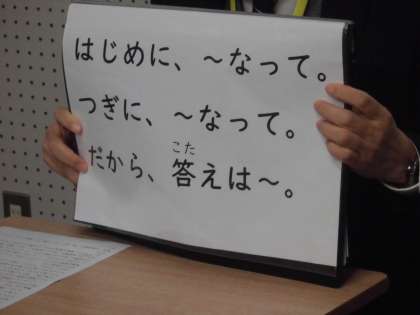 はじめに、～なって。
つぎに、～なって。
こた
だから、答えは～。